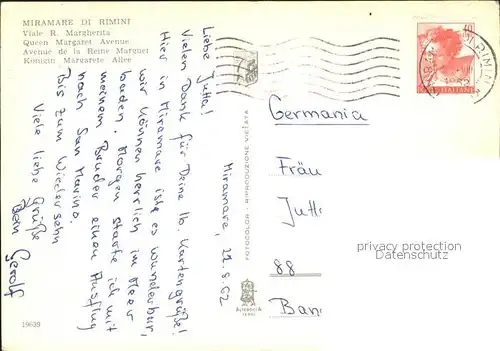 MIRAMARE DI RIMINI
Viale R. Margherita
Queen Margaret Avenue
Avenue de la Reine Marguet
Königin Margarete Allee
Miramare, 21.8.62
Liebe Jutta!
Vielen Dank für Deine lb. Kartengrüße!
Hier in Miramare ist es wunderbar,
wir können herrlich im Meer
baden. Morgen starte ich mit
meinem Bruder einen Ausflug
nach San Marino.
Bis zum Wiedersehn
Viele liebe Grüße
Dein Gerolf
19639
FOTOCOLOR - RIPRODUZIONE VIETATA
ALTEROCCA
TERNI
40
ITALIANE
RIMINI
Germania
Fräu
Jutt
88
Ban
privacy protection
Datenschutz